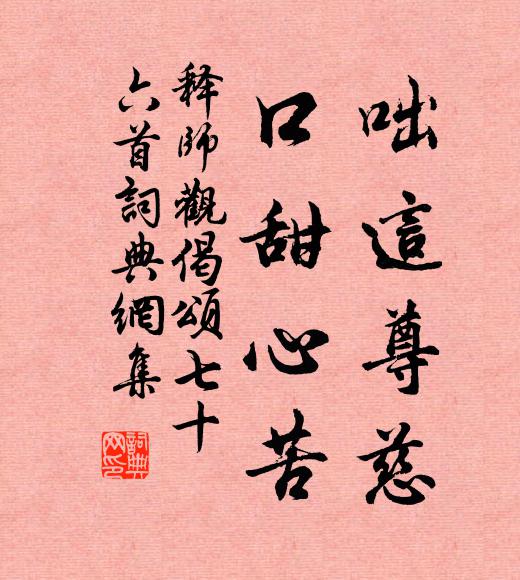 咄這尊慈
口甜心苦
释師觀偈頌七十
六首詞典網集
詞典网印